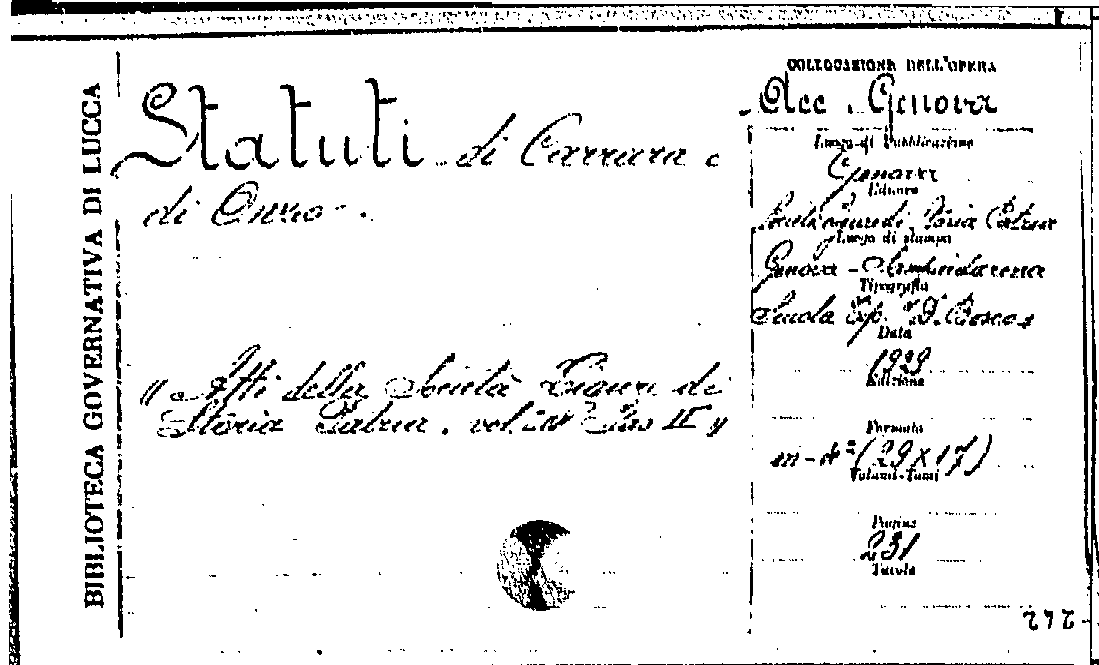 BIBLIOTECA GOVERNATIVA DI LUCCA
Statuti di Carrara e
di Onzo.
"Atti della Società Ligure di
Storia Patria. vol. Fas II"
COLLOCAZIONE DELL'OPERA
Acc. Genova
Luogo di Pubblicazione
Genova
Editore
Società Ligure di Storia Patria
Luogo di stampa
Genova - Sampierdarena
Tipografia
Scuola Tip. D. Bosco
Data
1929
Edizione
Formato
in-8° (29x17)
Volumi-Tomi
Pagine
231
Tavole